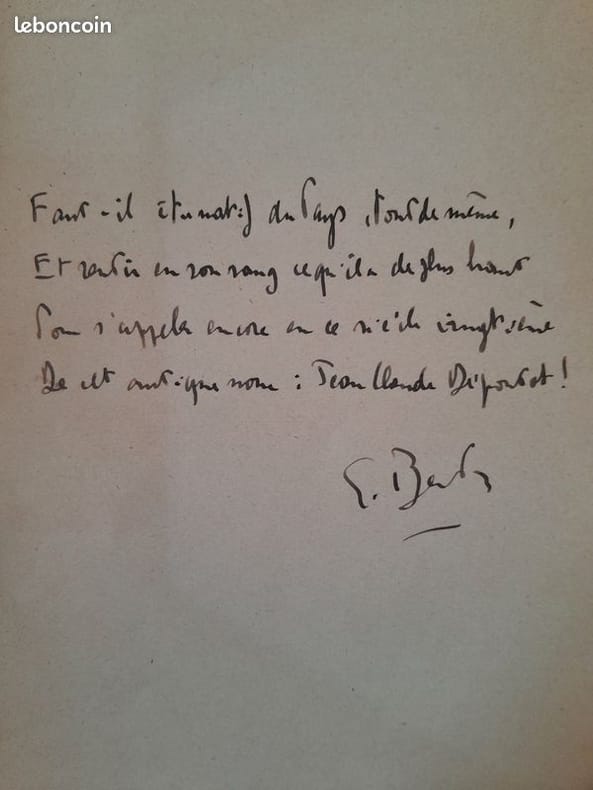 leboncoin
Faut-il être natif du Pays, tout de même,
Et sentir en son sang ce qu'il a de plus haut
Pour s'appeler encore en ce siècle vingtième
De cet antique nom : Jean Claude
E.